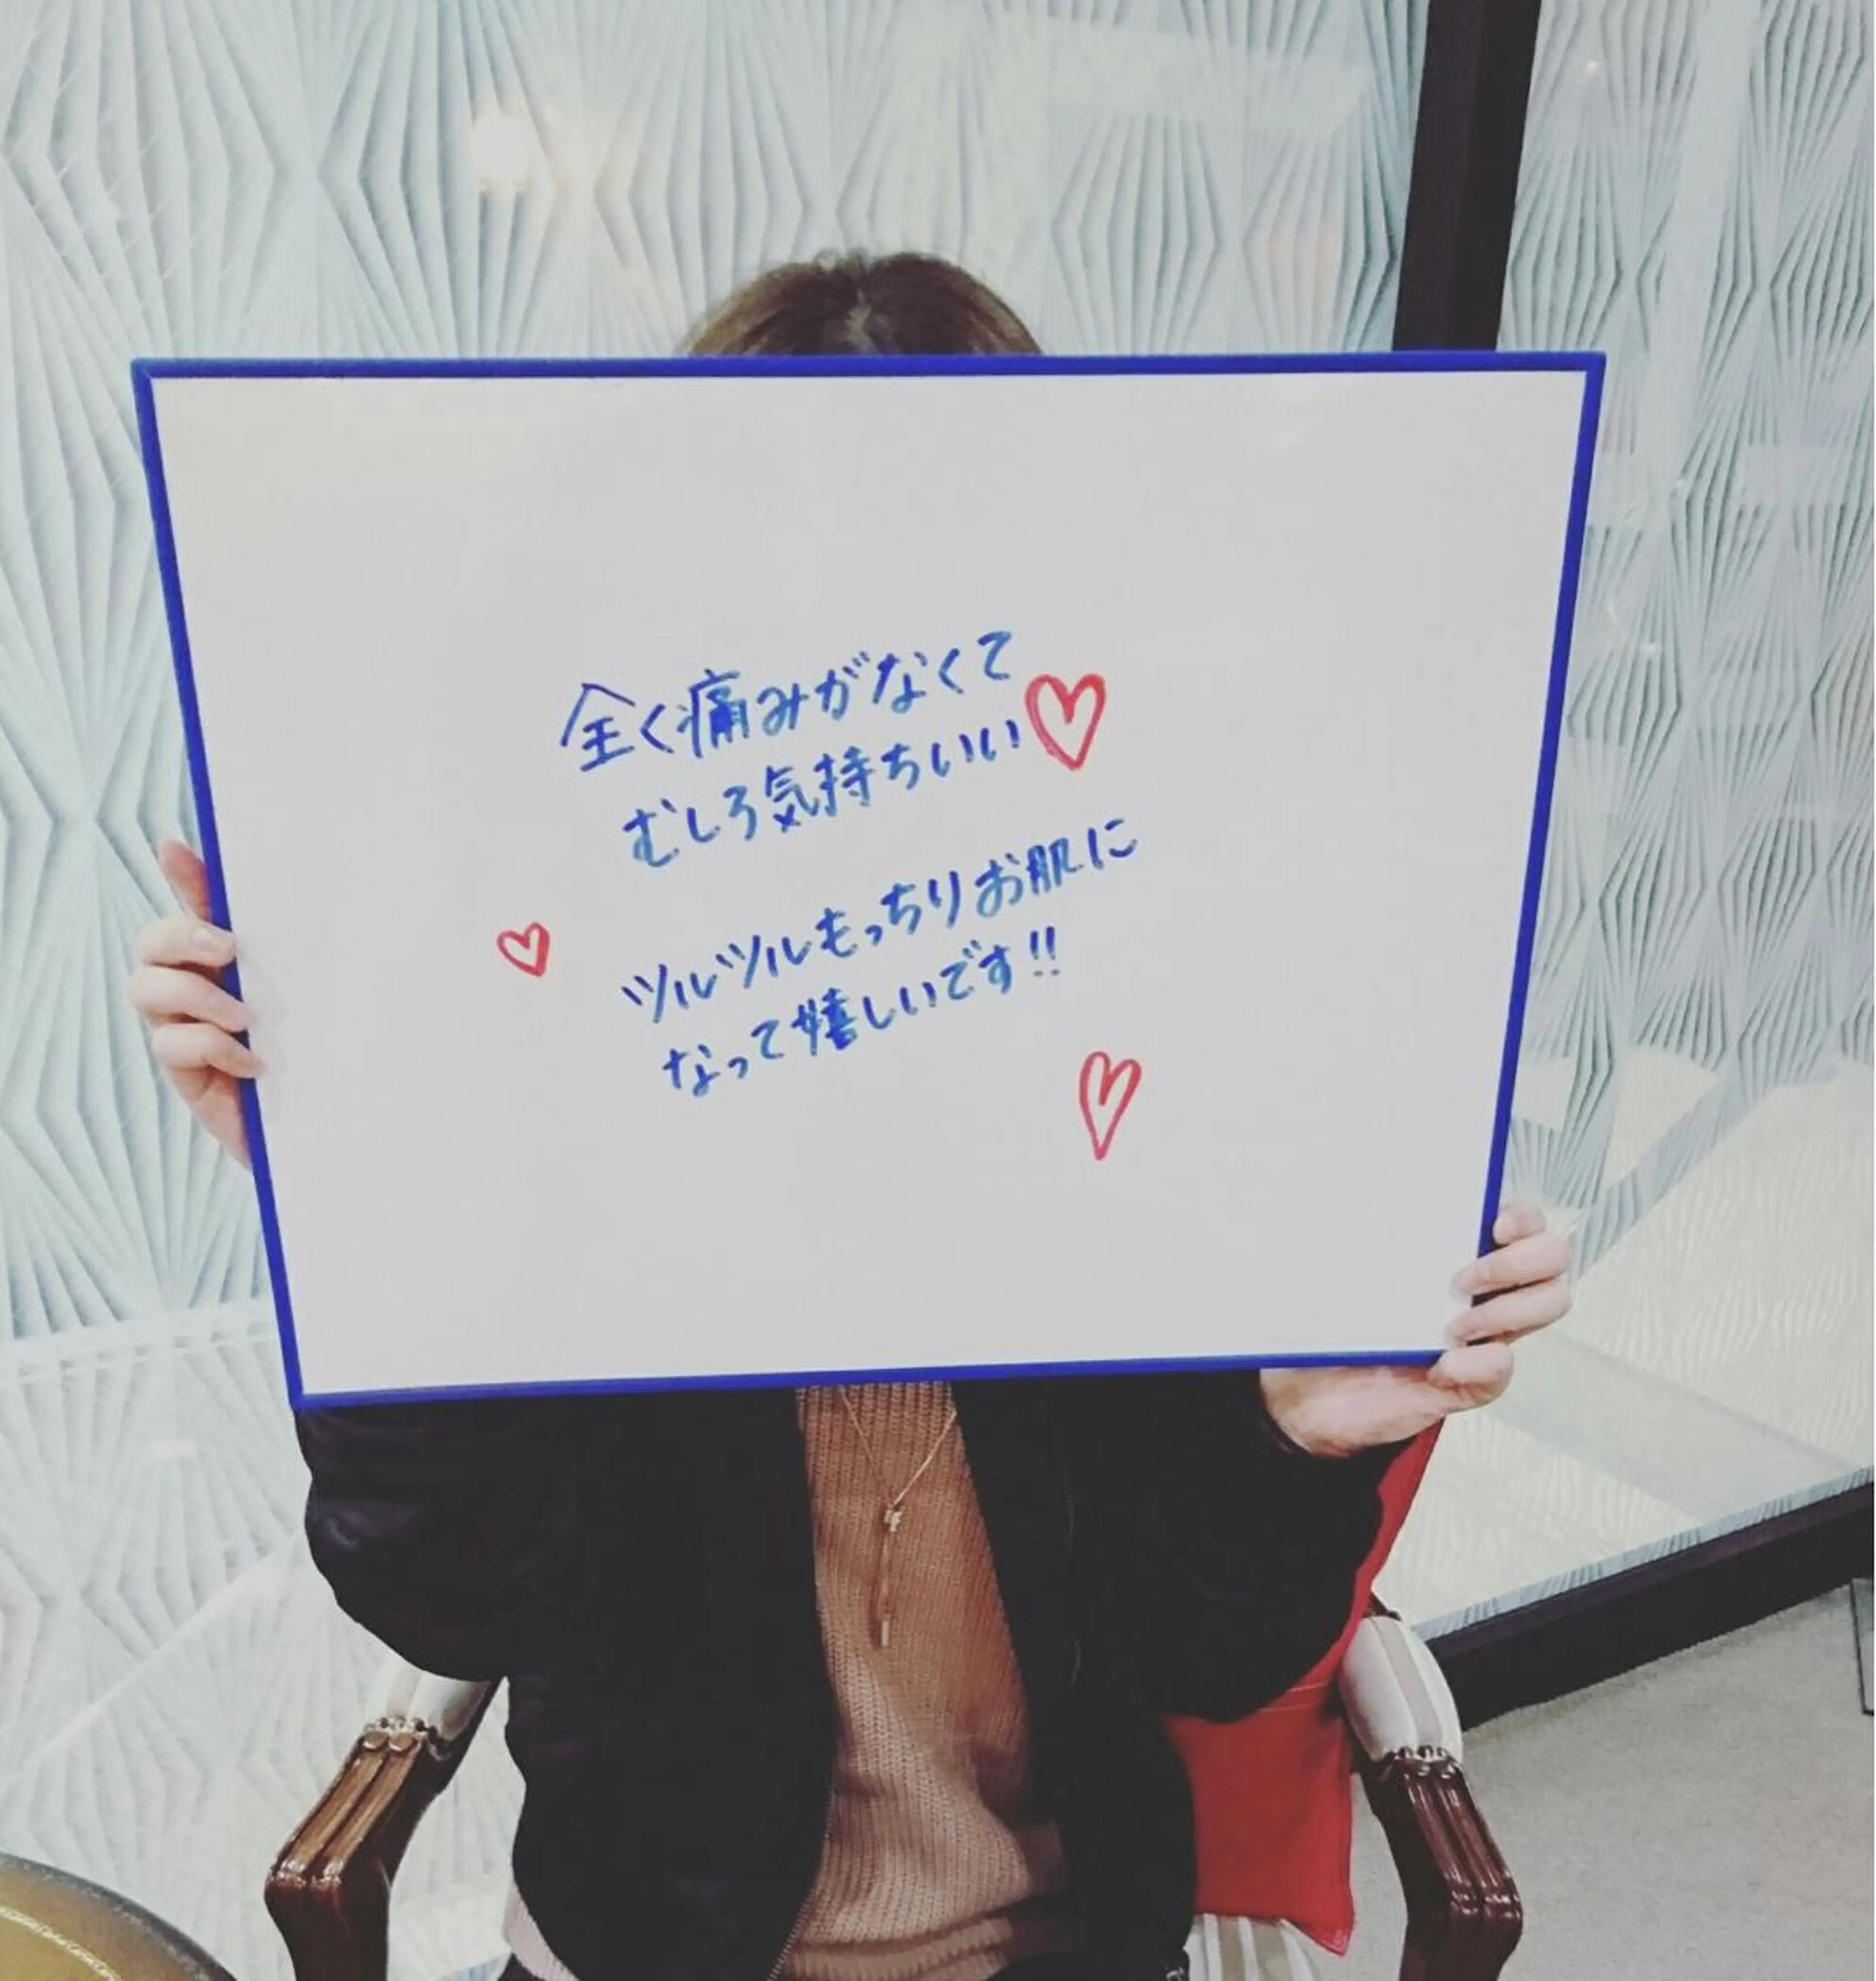 全く痛みがなくて
むしろ気持ちいい
ツルツルもっちりお肌に
なって嬉しいです!!